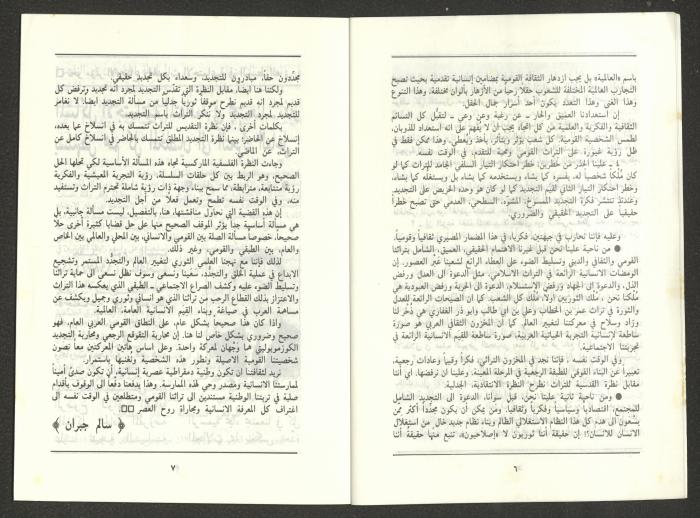 باسم «العالمية» بل يجب ازدهار الثقافة القومية بمضامين إنسانية تقدمية بحيث تصبح
التجارب العالمية المختلفة للشعوب حقلا رحباً من الأزهار بألوان مختلفة، وهذا التنوع
وهذا الغنى وهذا التعدد يكون أحد أسرار جمال الحقل.
إن استعدادنا العميق والحار ـ عن رغبة وعن وعي ـ لتقبل كل النسائم
الثقافية والفكرية والعلمية من كل اتجاه يجب ان لا يفهم على انه استعداد للذوبان،
لطمس الشخصية القومية. كل شعب يؤثر ويتأثر، يأخذ ويعطي. وهذا ممكن فقط في
ظل رؤية غيورة على التراث القومي ومحبة للتقدم، في الوقت نفسه.
علينا الحذر من خطرين، خطر احتكار التيار السلفي الجامد للتراث كما لو
كان مُلكاً شخصياً له، يفسره كما يشاء ويستخدمه كما يشاء بل ويستغله كما يشاء،
وخطر احتكار التيار الثاني لقيم التجديد كما لو كان هو وحده الحريص على التجديد.
وعندئذ تنتشر فكرة التجديد الممسوخ، المشوّه، السطحي، العدمي حتى تصبح خطراً
حقيقياً على التجديد الحقيقي والضروري.
وعليه فإننا نحارب في جبهتين، فكريا، في هذا المضمار المصيري ثقافياً وقومياً:
● من ناحية علينا نحن قبل غيرنا الاهتمام الحقيقي، العميق، الشامل بتراثنا
القومي والثقافي والديني وتسليط الضوء على العطاء الرائع لشعبنا عبر العصور. إن
الومضات الانسانية الرائعة في التراث الاسلامي، مثل الدعوة الى العدل ورفض
الذل، والدعوة إلى الجهاد ورفض الإستسلام، الدعوة إلى الحرية ورفض العبودية هي
مُلكنا نحن، مُلك الثوريين اولا، مُلك كل الشعب. كما ان الصيحات الرائعة للعدل
والثورة في تراث عمر بن الخطاب وعلي بن ابي طالب وابو ذر الغفاري هي ذُخر لنا
وزاد وسلاح في معركتنا لتغيير العالم. كما أن المخزون الثقافي العربي هو صورة
ساطعة لإنسانية التجربة الحياتية العربية، صورة ساطعة للقيم الانسانية الرائعة في
تجربتنا الاجتماعية.
وفي الوقت نفسه ، فإننا نجد في المخزون التراثي، فكراً وقيماً وعادات رجعية،
تعبيراً عن البناء الفوقي للطبقة الرجعية في المرحلة المعينة، وعلينا ان نرفضها. أي أننا
مقابل نظرة القدسية للتراث نطرح النظرة الانتقادية، الجدلية.
● ومن ناحية ثانية علينا نحن، قبل سوانا، الدعوة الى التجديد الشامل
للمجتمع، اقتصادياً وسياسياً وفكرياً وثقافيا. ومَن يمكن أن يكون مجدّداً أكثر ممن
يسعون الى هدم كل هذا النظام الاستغلالي الظالم وبناء نظام جديد خال من استغلال
الانسان للانسان؟! إن حقيقة أننا ثوريون لا «إصلاحيون»، تنبع منها حقيقة أننا
٦
مجدّدون حقاً، مبادرون للتجديد، وسعداء بكل تجديد حقيقي.
ولكننا هنا أيضاً، مقابل النظرة التي تقدّس التجديد لمجرد أنه تجديد وترفض كل
قديم لمجرد إنه قديم نطرح موقفاً ثورياً جدليا من مسألة التجديد ايضا. لا نغامر
بالتجديد لمجرد التجديد ولا ننكر التراث باسم التجديد.
بكلمات أخرى ، فإن نظرة التقديس للتراث تتمسك به في انسلاخ عما بعده،
إنسلاخ عن الحاضر؛ بينما نظرة التجديد المطلق تتمسك بالحاضر في انسلاخ كامل عن
التراث، عن الماضي.
وجاءت النظرة الفلسفية الماركسية تجاه هذه المسألة الأساسية لكي تجعلها الحل
الصحيح، وهو الربط بين كل حلقات السلسلة، رؤية التجربة المعيشية والفكرية
رؤية متتابعة، مترابطة، مما سمح ببناء وجهة ذات رؤية شاملة تحترم التراث وتستفيد
منه، وفي الوقت نفسه تطمح وتعمل فعلا من أجل التجديد.
إن هذه القضية التي نحاول مناقشتها، هنا، بالتفصيل، ليست مسألة جانبية، بل
هي مسألة أساسية جداً يؤثر الموقف الصحيح منها على حل قضايا كثيرة أخرى حلاً
صحيحاً، خصوصاً مسألة الصلة بين القومي والانساني، بين المحلي والعالمي بين الخاص
والعام، بين الطبقي والقومي، وغير ذلك.
لذلك فإننا مع نهجنا العلمي الثوري لتغيير العالم والتجدّد المستمر وتشجيع
الابداع في عملية الخلق والتجدّد، سَعينا ونسعى وسوف نظل نسعى الى حماية تراثنا
وتسليط الضوء عليه وكشف الصراع الاجتماعي ـ الطبقي الذي يعكسه هذا التراث
والاعتزاز بذلك القطاع الرحب من تراثنا الذي هو انساني وثوري وجميل ويكشف عن
مساهمة العرب في صياغة وبناء القيم الانسانية العامة، العالمية.
واذا كان هذا صحيحا بشكل عام، على النطاق القومي العربي العام، فهو
صحيح وضروري بشكل خاص لنا هنا. إن محاربة التقوقع الرجعي ومحاربة التجديد
الكوزموبوليتي هما وَجهان لمعركة واحدة. وعلى أساس هاتين المعركتين معاً نصون
شخصيتنا القومية الاصيلة ونطور هذه الشخصية ونغنيها باستمرار.
نريد لثقافتنا ان تكون وطنية دمقراطية عصرية إنسانية، أن تكون صدىً أميناً
لممارستنا الانسانية ومصدر وحي لهذه الممارسة. وهذا يدفعنا دفعاً الى الوقوف بأقدام
صلبة في تربتنا الوطنية مستندين الى تراثنا القومي ومتطلعين في الوقت نفسه الى
اغتراف كل المعرفة الانسانية ومجاراة روح العصر □□
﴿ سالم جبران ﴾
٧